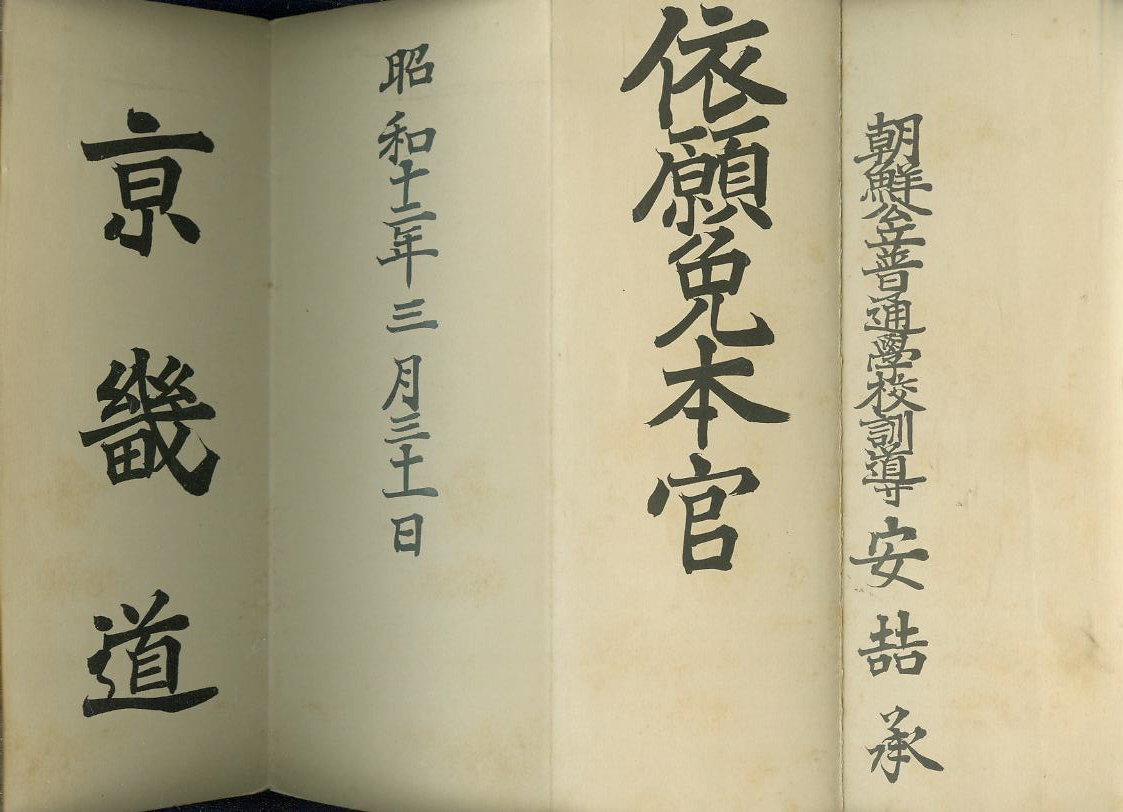 朝鮮公立普通學校訓導安喆承
依願免本官
昭和十二年三月三十一日
京畿道